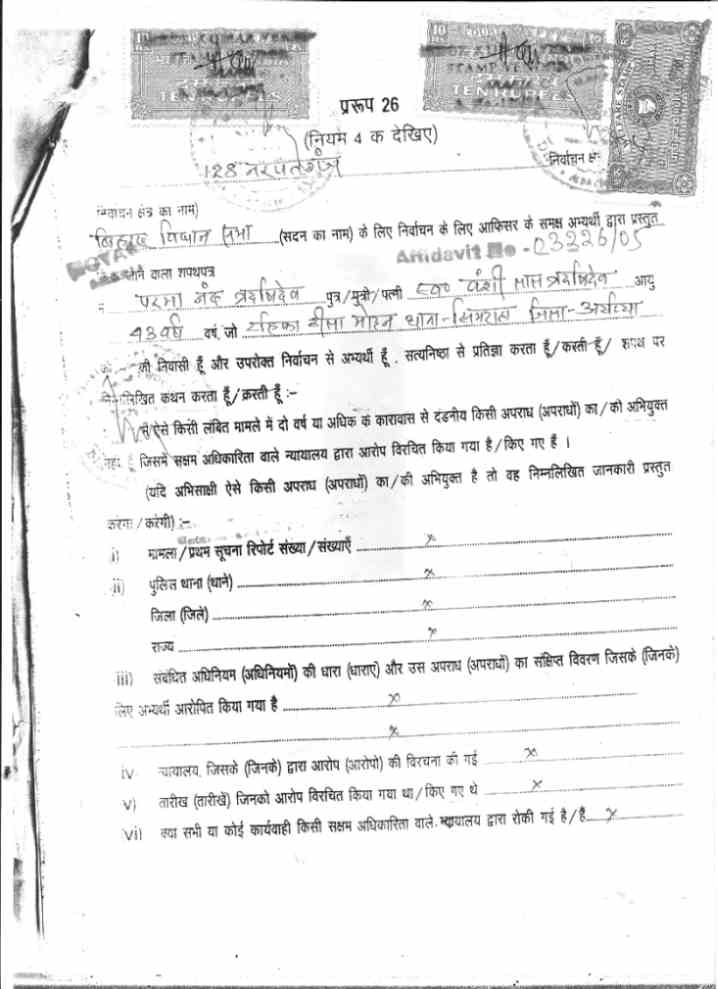 TEN RUPEES
STAMP VE
TEN RUPEES
प्ररूप 26
(नियम 4 क देखिए)
128 नरपतगंज
निर्वाचन क्षे
निर्वाचन क्षेत्र का नाम)
बिहार विधान सभा (सदन का नाम) के लिए निर्वाचन के लिए आफिसर के समक्ष अभ्यर्थी द्वारा प्रस्तुत
Affidavit No - 03226/05
होने वाला शपथपत्र
परमा नंद ऋषिदेव पुत्र/पुत्री/पत्नी स्व० वंशी लाल ऋषिदेव आयु
43 वर्ष वर्ष, जो
का/की निवासी हूँ और उपरोक्त निर्वाचन से अभ्यर्थी हूँ, सत्यनिष्ठा से प्रतिज्ञा करता हूँ/करती हूँ/ शपथ पर
निम्नलिखित कथन करता हूँ/करती हूँ :-
ऐसे किसी लंबित मामले में दो वर्ष या अधिक के कारावास से दंडनीय किसी अपराध (अपराधों) का/की अभियुक्त
नहीं हूँ जिसमें सक्षम अधिकारिता वाले न्यायालय द्वारा आरोप विरचित किया गया है/किए गए हैं ।
(यदि अभिसाक्षी ऐसे किसी अपराध (अपराधों) का/की अभियुक्त है तो वह निम्नलिखित जानकारी प्रस्तुत
करेगा/करेगी) :-
i) मामला/प्रथम सूचना रिपोर्ट संख्या/संख्याएँ x
ii) पुलिस थाना (थाने) x
जिला (जिले) x
राज्य x
iii) संबंधित अधिनियम (अधिनियमों) की धारा (धाराएं) और उस अपराध (अपराधों) का संक्षिप्त विवरण जिसके (जिनके)
लिए अभ्यर्थी आरोपित किया गया है x
x
iv न्यायालय, जिसके (जिनके) द्वारा आरोप (आरोपो) की विरचना की गई x
v) तारीख (तारीखें) जिनको आरोप विरचित किया गया था/किए गए थे x
vi) क्या सभी या कोई कार्यवाही किसी सक्षम अधिकारिता वाले न्यायालय द्वारा रोकी गई है/हैं x